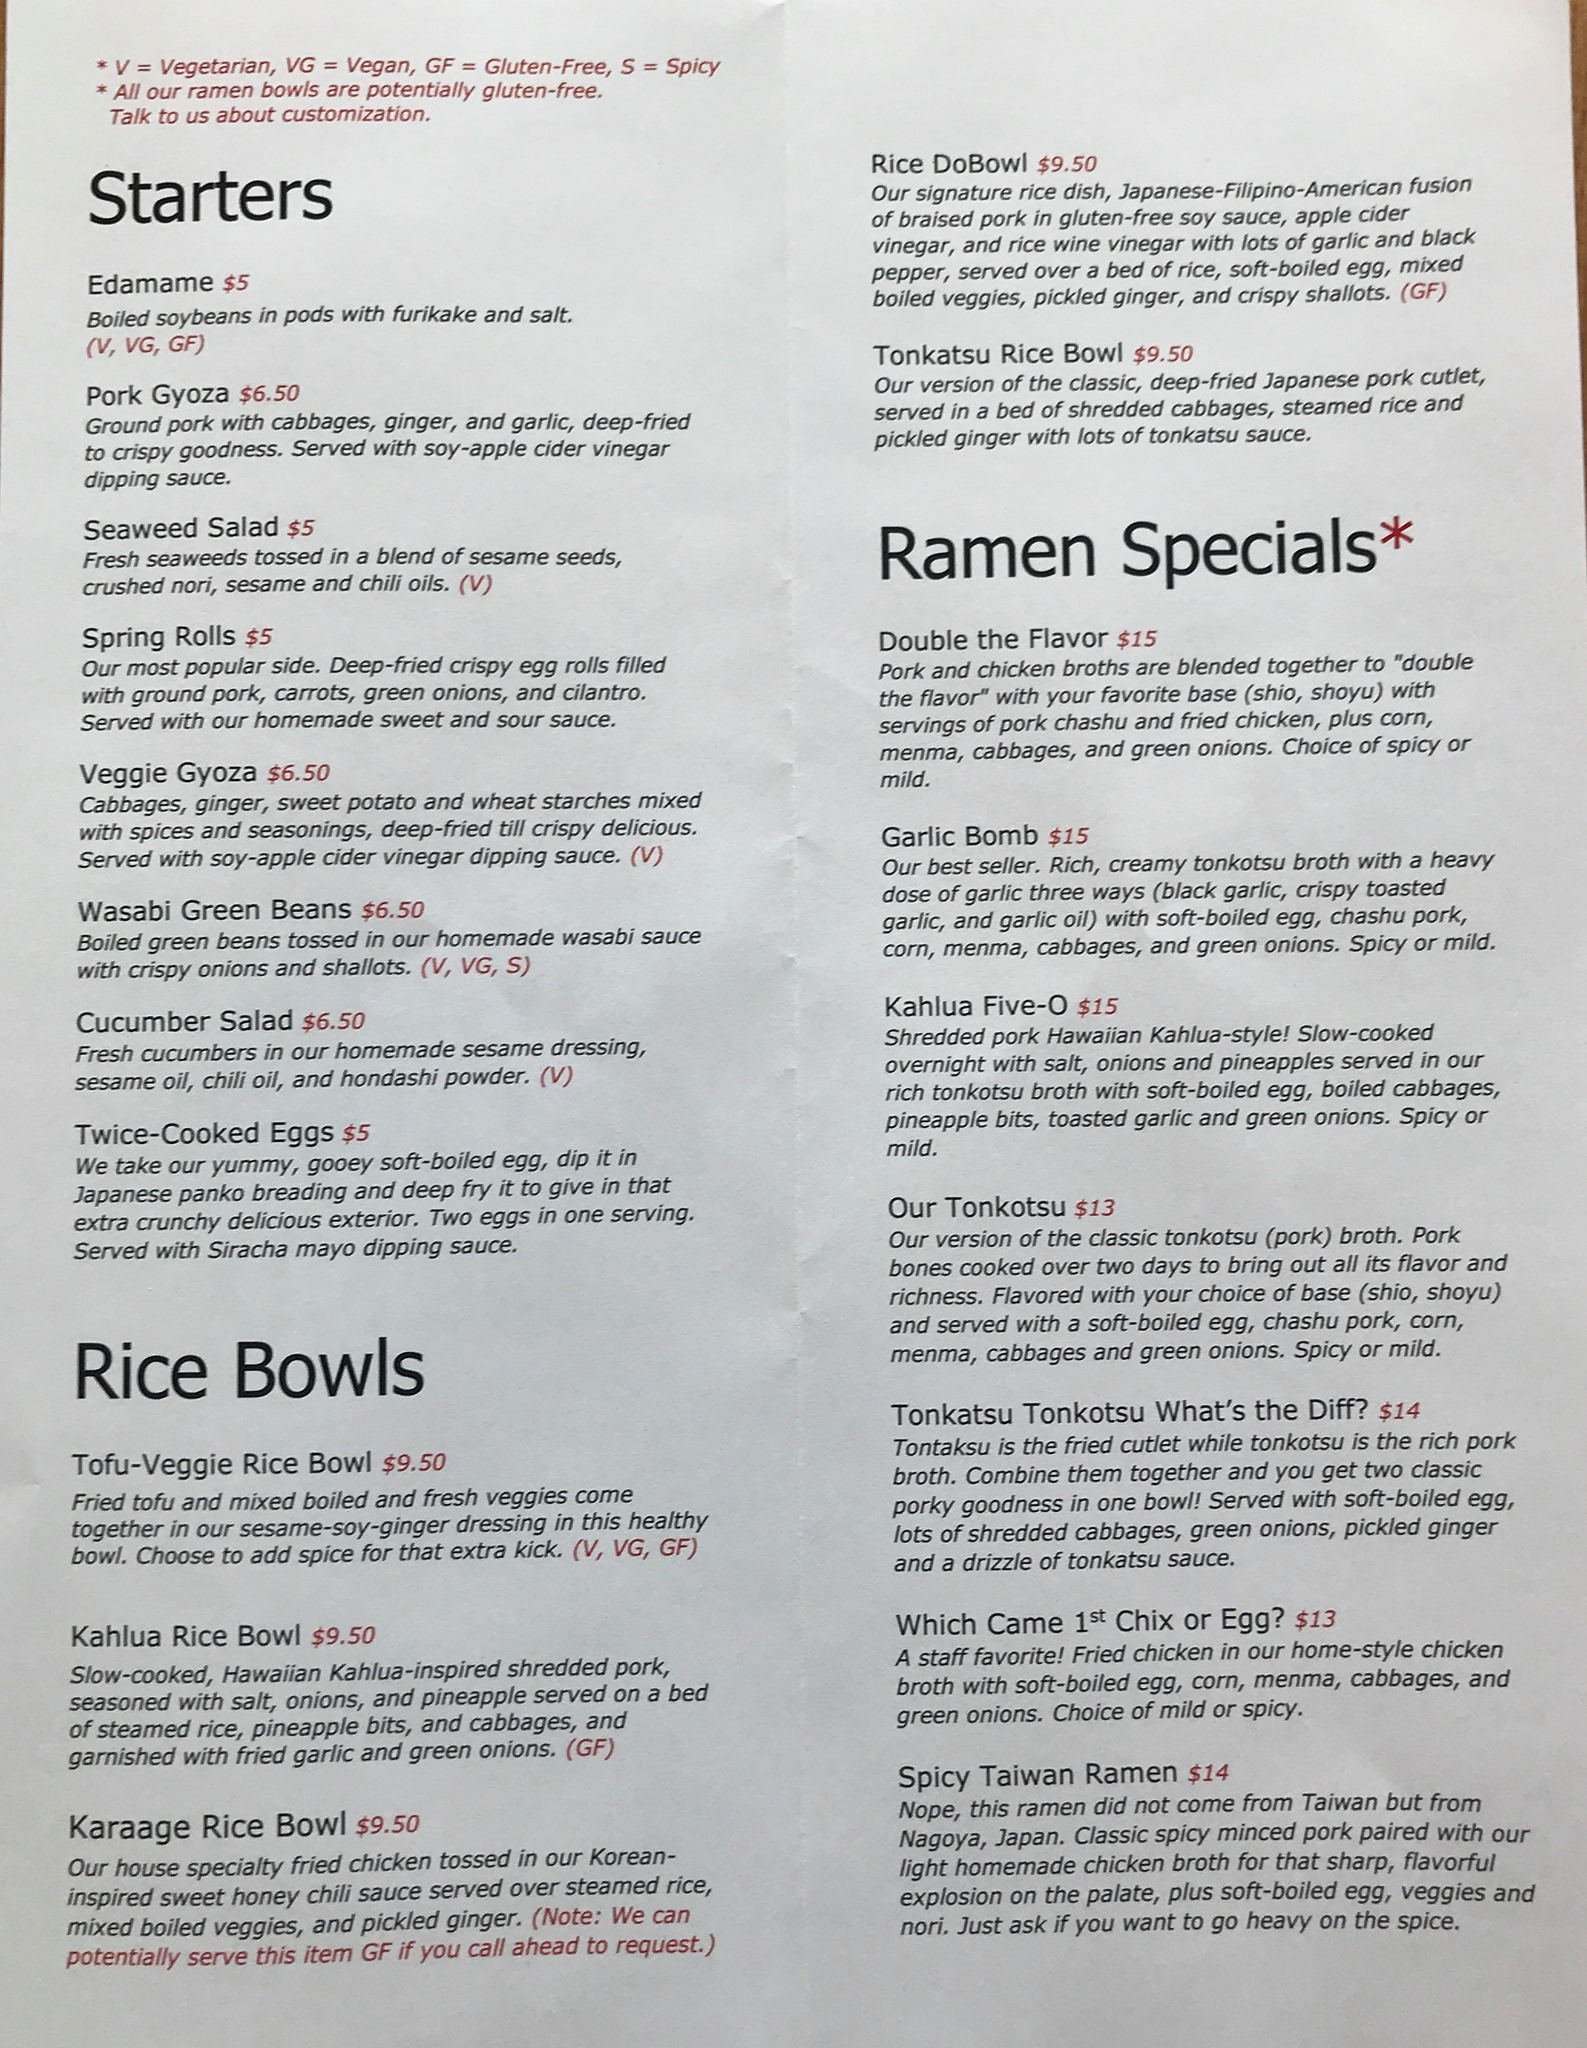 * V = Vegetarian, VG = Vegan, GF = Gluten-Free, S = Spicy
* All our ramen bowls are potentially gluten-free.
Talk to us about customization.
Starters
Edamame $5
Boiled soybeans in pods with furikake and salt.
(V, VG, GF)
Pork Gyoza $6.50
Ground pork with cabbages, ginger, and garlic, deep-fried
to crispy goodness. Served with soy-apple cider vinegar
dipping sauce.
Seaweed Salad $5
Fresh seaweeds tossed in a blend of sesame seeds,
crushed nori, sesame and chili oils. (V)
Spring Rolls $5
Our most popular side. Deep-fried crispy egg rolls filled
with ground pork, carrots, green onions, and cilantro.
Served with our homemade sweet and sour sauce.
Veggie Gyoza $6.50
Cabbages, ginger, sweet potato and wheat starches mixed
with spices and seasonings, deep-fried till crispy delicious.
Served with soy-apple cider vinegar dipping sauce. (V)
Wasabi Green Beans $6.50
Boiled green beans tossed in our homemade wasabi sauce
with crispy onions and shallots. (V, VG, S)
Cucumber Salad $6.50
Fresh cucumbers in our homemade sesame dressing,
sesame oil, chili oil, and hondashi powder. (V)
Twice-Cooked Eggs $5
We take our yummy, gooey soft-boiled egg, dip it in
Japanese panko breading and deep fry it to give in that
extra crunchy delicious exterior. Two eggs in one serving.
Served with Siracha mayo dipping sauce.
Rice Bowls
Tofu-Veggie Rice Bowl $9.50
Fried tofu and mixed boiled and fresh veggies come
together in our sesame-soy-ginger dressing in this healthy
bowl. Choose to add spice for that extra kick. (V, VG, GF)
Kahlua Rice Bowl $9.50
Slow-cooked, Hawaiian Kahlua-inspired shredded pork,
seasoned with salt, onions, and pineapple served on a bed
of steamed rice, pineapple bits, and cabbages, and
garnished with fried garlic and green onions. (GF)
Karaage Rice Bowl $9.50
Our house specialty fried chicken tossed in our Korean-
inspired sweet honey chili sauce served over steamed rice,
mixed boiled veggies, and pickled ginger. (Note: We can
potentially serve this item GF if you call ahead to request.)
Rice DoBowl $9.50
Our signature rice dish, Japanese-Filipino-American fusion
of braised pork in gluten-free soy sauce, apple cider
vinegar, and rice wine vinegar with lots of garlic and black
pepper, served over a bed of rice, soft-boiled egg, mixed
boiled veggies, pickled ginger, and crispy shallots. (GF)
Tonkatsu Rice Bowl $9.50
Our version of the classic, deep-fried Japanese pork cutlet,
served in a bed of shredded cabbages, steamed rice and
pickled ginger with lots of tonkatsu sauce.
Ramen Specials*
Double the Flavor $15
Pork and chicken broths are blended together to "double
the flavor" with your favorite base (shio, shoyu) with
servings of pork chashu and fried chicken, plus corn,
menma, cabbages, and green onions. Choice of spicy or
mild.
Garlic Bomb $15
Our best seller. Rich, creamy tonkotsu broth with a heavy
dose of garlic three ways (black garlic, crispy toasted
garlic, and garlic oil) with soft-boiled egg, chashu pork,
corn, menma, cabbages, and green onions. Spicy or mild.
Kahlua Five-O $15
Shredded pork Hawaiian Kahlua-style! Slow-cooked
overnight with salt, onions and pineapples served in our
rich tonkotsu broth with soft-boiled egg, boiled cabbages,
pineapple bits, toasted garlic and green onions. Spicy or
mild.
Our Tonkotsu $13
Our version of the classic tonkotsu (pork) broth. Pork
bones cooked over two days to bring out all its flavor and
richness. Flavored with your choice of base (shio, shoyu)
and served with a soft-boiled egg, chashu pork, corn,
menma, cabbages and green onions. Spicy or mild.
Tonkatsu Tonkotsu What's the Diff? $14
Tontaksu is the fried cutlet while tonkotsu is the rich pork
broth. Combine them together and you get two classic
porky goodness in one bowl! Served with soft-boiled egg,
lots of shredded cabbages, green onions, pickled ginger
and a drizzle of tonkatsu sauce.
Which Came 1st Chix or Egg? $13
A staff favorite! Fried chicken in our home-style chicken
broth with soft-boiled egg, corn, menma, cabbages, and
green onions. Choice of mild or spicy.
Spicy Taiwan Ramen $14
Nope, this ramen did not come from Taiwan but from
Nagoya, Japan. Classic spicy minced pork paired with our
light homemade chicken broth for that sharp, flavorful
explosion on the palate, plus soft-boiled egg, veggies and
nori. Just ask if you want to go heavy on the spice.